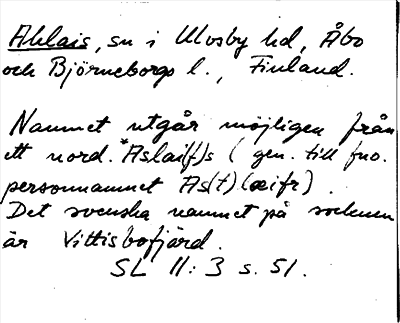 Ahlais, sn i Ulvsby hd, Åbo
och Björneborgs l., Finland.
Namnet utgår möjligen från
ett nord. *Aslai(f)s (gen. till fno.
personnamnet As(t)(æifr).
Det svenska namnet på socknen
är Vittisbofjärd.
SL 11:3 s. 51.